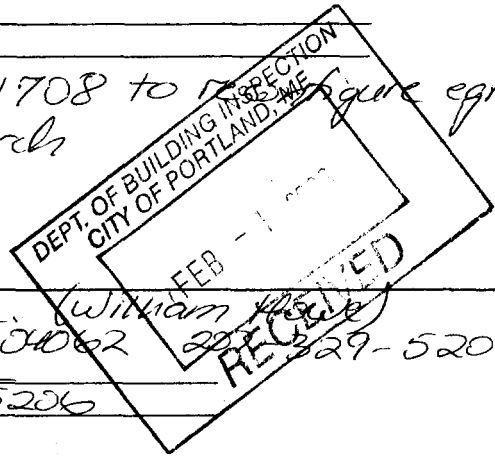 1708 to
DEPT. OF BUILDING INSPECTION
CITY OF PORTLAND, ME
FEB - 1
RECEIVED
(William
04062 329-520
5206